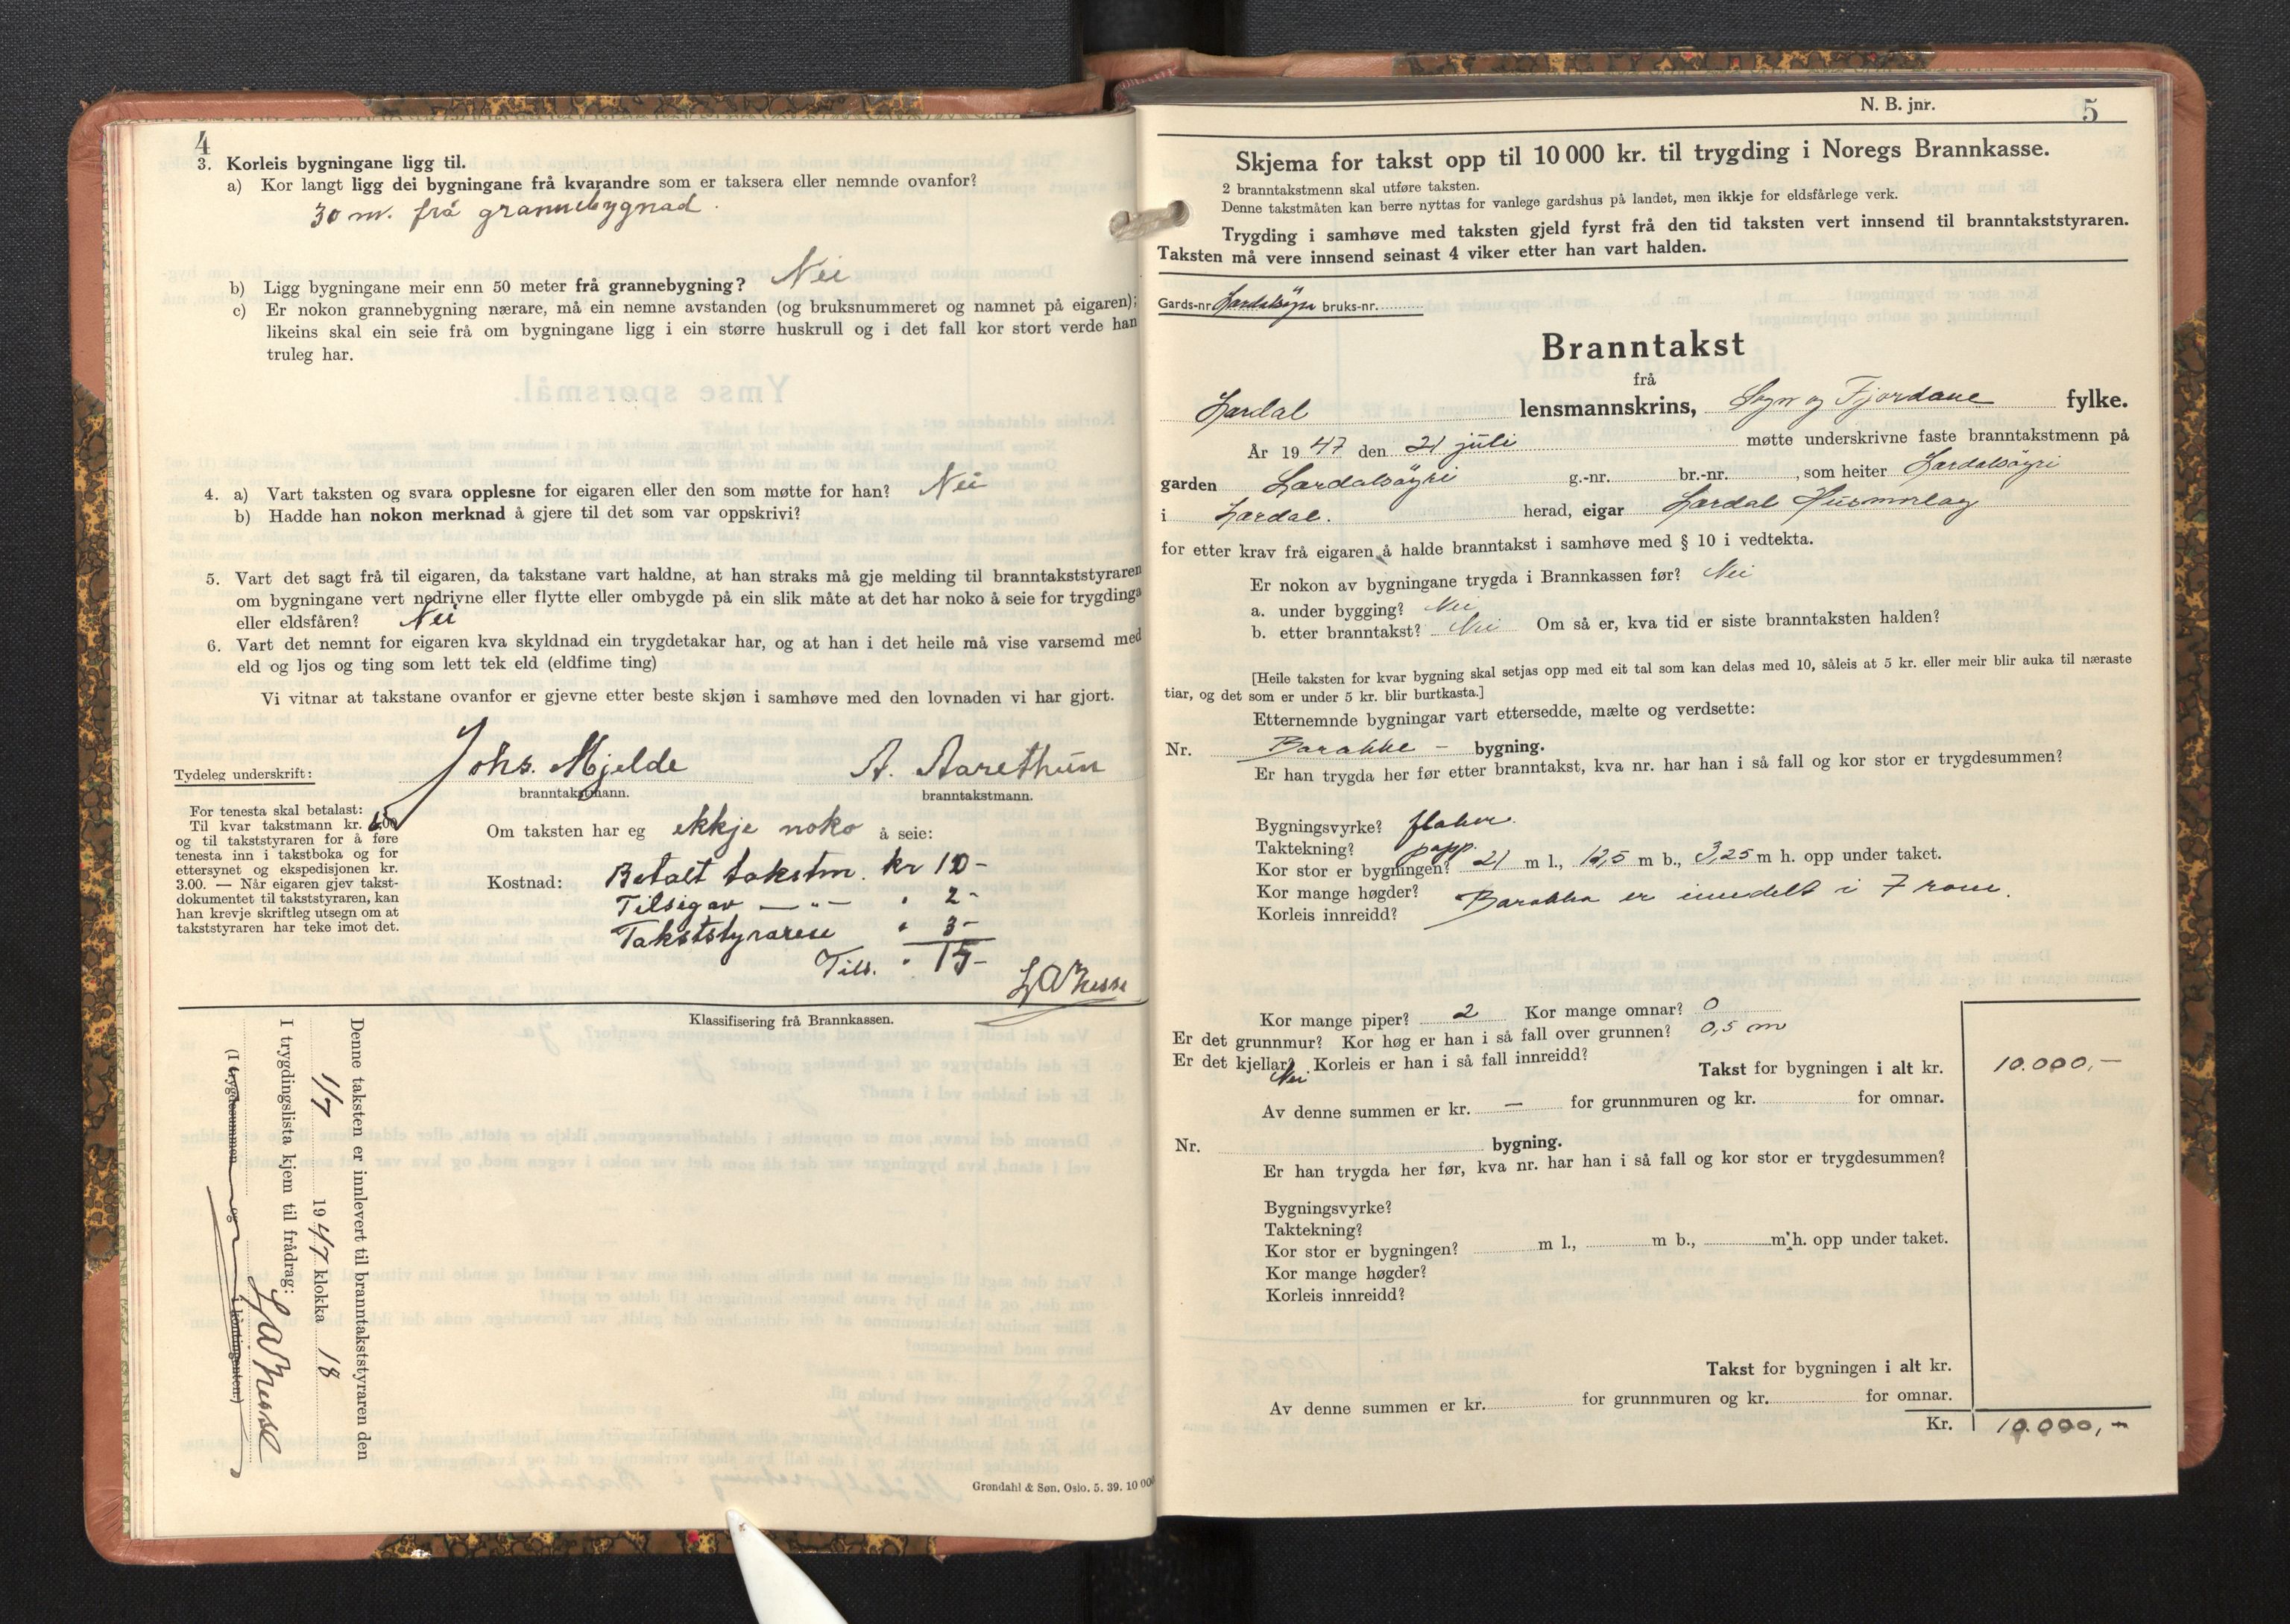 4
3. Korleis bygningane ligg til.
a) Kor langt ligg dei bygningane frå kvarandre som er taksera eller nemnde ovanfor?
30 m. frå grannebygnad.
b) Ligg bygningane meir enn 50 meter frå grannebygning? Nei
c) Er nokon grannebygning nærare, må ein nemne avstanden (og bruksnummeret og namnet på eigaren);
likeins skal ein seie frå om bygningane ligg i ein større huskrull og i det fall kor stort verde han
truleg har.
4. a) Vart taksten og svara opplesne for eigaren eller den som møtte for han? Nei
b) Hadde han nokon merknad å gjere til det som var oppskrivi?
5. Vart det sagt frå til eigaren, da takstane vart haldne, at han straks må gje melding til branntakststyraren
om bygningane vert nedrivne eller flytte eller ombygde på ein slik måte at det har noko å seie for trygdinga
eller eldsfåren? Nei
6. Vart det nemnt for eigaren kva skyldnad ein trygdetakar har, og at han i det heile må vise varsemd med
eld og ljos og ting som lett tek eld (eldfime ting)
Vi vitnar at takstane ovanfor er gjevne etter beste skjøn i samhøve med den lovnaden vi har gjort.
Tydeleg underskrift: Johs. Mjelde A. Aarethun
branntakstmann. branntakstmann.
For tenesta skal betalast:
Til kvar takstmann kr.
og til takststyraren for å føre
tenesta inn i takstboka og for
ettersynet og ekspedisjonen kr.
3.00. — Når eigaren gjev takst-
dokumentet til takststyraren, kan
han krevje skriftleg utsegn om at
takststyraren har teke imot det.
Om taksten har eg ekkje noko å seie:
Kostnad: Betalt takstm. kr 10 -
Tilsigar — " — " 2 -
Takststyraren " 3 -
Tils. " 15 -
Klassifisering frå Brannkassen.
Denne taksten er innlevert til branntakststyraren den
1/7 1947 klokka 18
I trygdingslista kjem til frådrag:
(I trygdesummen og i kontingenten.)
Grøndahl & Søn, Oslo. 5. 39. 10 000
N. B. jnr. 5
Skjema for takst opp til 10 000 kr. til trygding i Noregs Brannkasse.
2 branntakstmenn skal utføre taksten.
Denne takstmåten kan berre nyttas for vanlege gardshus på landet, men ikkje for eldsfårlege verk.
Trygding i samhøve med taksten gjeld fyrst frå den tid taksten vert innsend til branntakststyraren.
Taksten må vere innsend seinast 4 viker etter han vart halden.
Gards-nr. Lærdalsøyri bruks-nr.
Branntakst
frå
Lærdal lensmannskrins, Sogn og Fjordane fylke.
År 1947 den 21 juli møtte underskrivne faste branntakstmenn på
garden Lærdalsøyri g.-nr. br.-nr. , som heiter Lærdalsøyri
i Lærdal. herad, eigar Lærdal Husmorlag
for etter krav frå eigaren å halde branntakst i samhøve med § 10 i vedtekta.
Er nokon av bygningane trygda i Brannkassen før? Nei
a. under bygging? Nei
b. etter branntakst? Nei Om så er, kva tid er siste branntaksten halden?
[Heile taksten for kvar bygning skal setjas opp med eit tal som kan delas med 10, såleis at 5 kr. eller meir blir auka til næraste
tiar, og det som er under 5 kr. blir burtkasta.]
Etternemnde bygningar vart ettersedde, mælte og verdsette:
Nr. Barakke - bygning.
Er han trygda her før etter branntakst, kva nr. har han i så fall og kor stor er trygdesummen?
Bygningsvyrke? flaker.
Taktekning? papp.
Kor stor er bygningen? 21 m l., 12,5 m b., 3,25 m h. opp under taket.
Kor mange høgder?
Korleis innreidd? Barakka er inndelt i 7 rom.
Kor mange piper? 2 Kor mange omnar? 0
Er det grunnmur? Kor høg er han i så fall over grunnen? 0,5 m
Er det kjellar? Korleis er han i så fall innreidd?
Nei
Takst for bygningen i alt kr. 10.000,—
Av denne summen er kr. — for grunnmuren og kr. for omnar.
Nr. bygning.
Er han trygda her før, kva nr. har han i så fall og kor stor er trygdesummen?
Bygningsvyrke?
Taktekning?
Kor stor er bygningen? m l., m b., m h. opp under taket.
Kor mange høgder?
Korleis innreidd?
Takst for bygningen i alt kr.
Av denne summen er kr. for grunnmuren og kr. for omnar.
Kr. 10.000,—